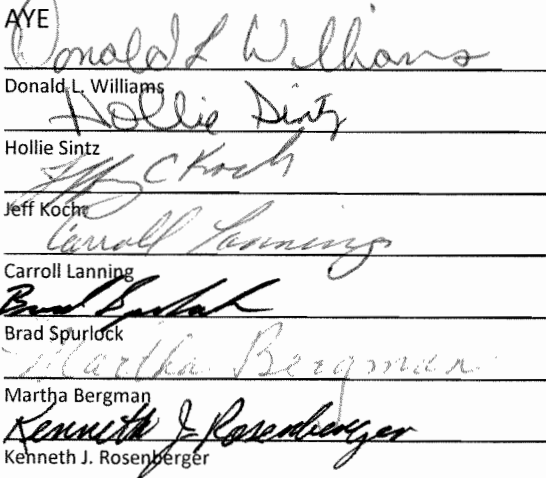 AYE
Donald L Williams
Donald L. Williams
Hollie Sintz
Hollie Sintz
Jeff C Koch
Jeff Koch
Carroll Lanning
Carroll Lanning
Brad Spurlock
Brad Spurlock
Martha Bergman
Martha Bergman
Kenneth J. Rosenberger
Kenneth J. Rosenberger